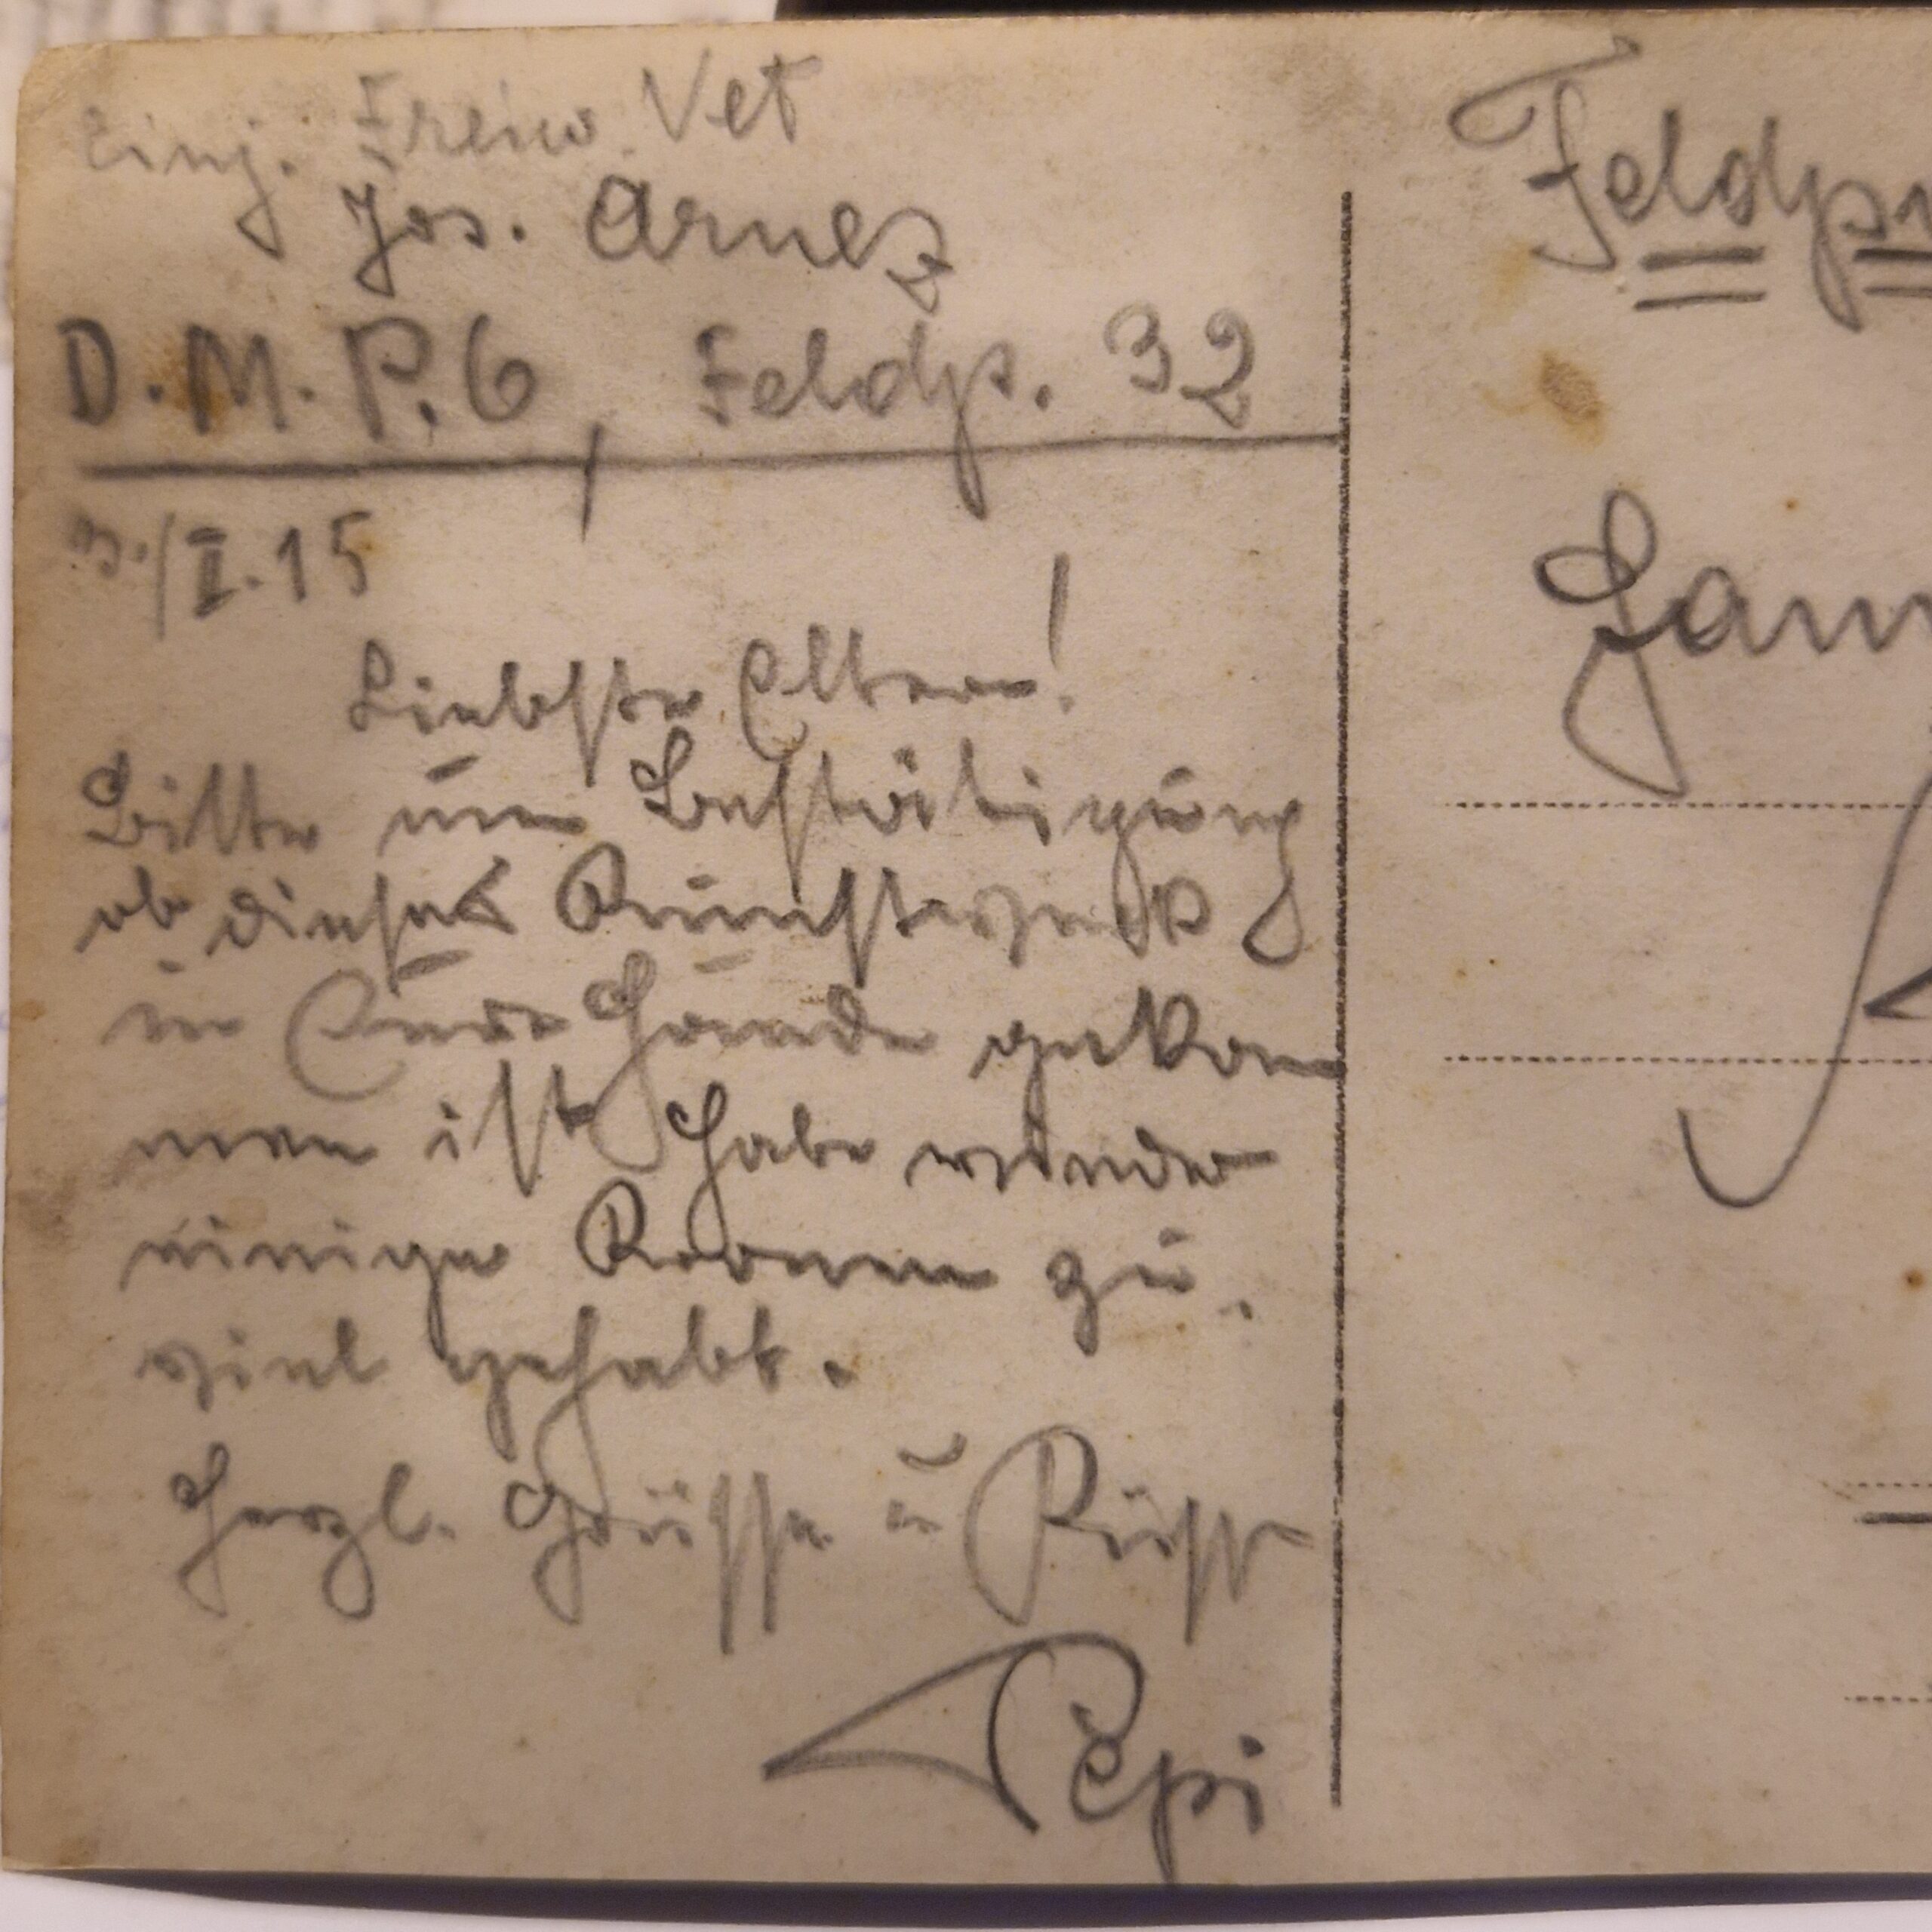 Einj. Freiw. Vet
Jos. Arnez
D.M.P.6, Feldp. 32
3./I.15
Liebste Eltern!
Bitte um Bestätigung
ob dieses Kunstwerk
in Eure Hände gekom
men ist Habe wieder
einige Kronen zu.
viel gehabt.
Herzl. Grüsse u Küsse
Pepi
Feldp
Fam